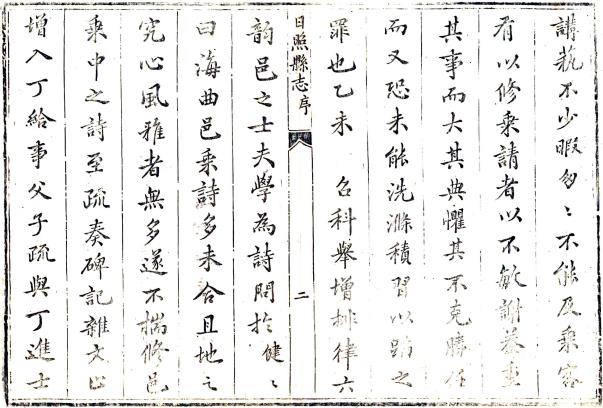 講藝不少暇匆〻不能及乘客
有以修乘請者以不敏謝蓋重
其事而大其典懼其不克勝任
而又恐未能洗滌積習以蹈之
罪也乙未 召科舉增排律六
日照縣志序 二
韵邑之士夫學為詩問於健〻
曰海曲邑乘詩多未合且地之
究心風雅者無多遂不揣修邑
乘中之詩至疏奏碑記雜文止
增入丁給事父子疏與丁進士